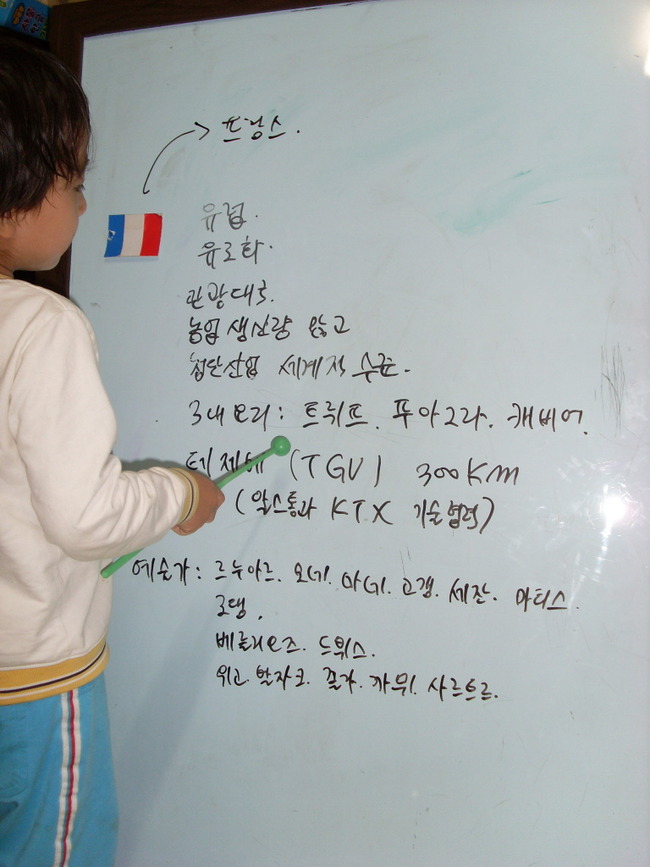 프랑스.
유럽.
유로화.
관광대국.
농업 생산량 많고
첨단산업 세계적 수준.
3대요리: 트뤼프. 푸아그라. 캐비어.
테제베 (TGV) 300KM
(알스통과 KTX 기술협력)
예술가: 르누아르. 모네. 마네. 고갱. 세잔. 마티스.
로댕.
베를리오즈. 드뷔스.
위고. 발자크. 졸라. 까뮈. 사르트르.